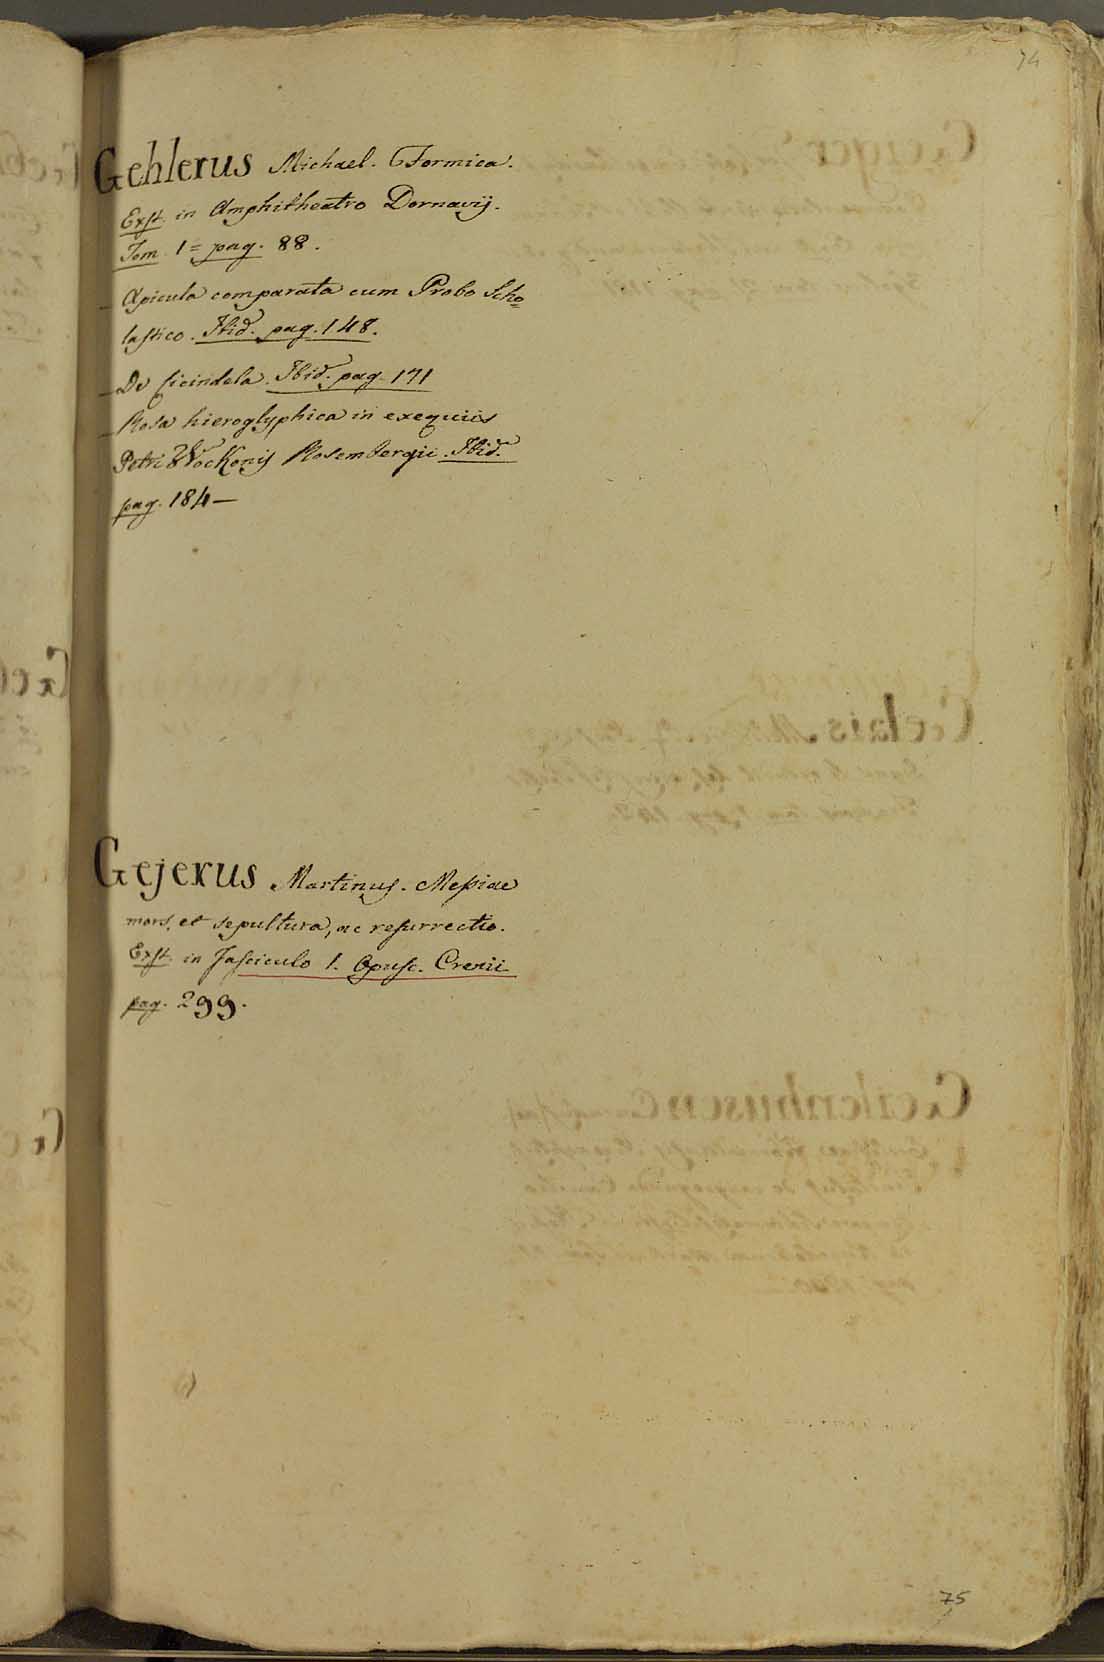 74
Gehlerus Michael. Formica.
Exst. in Amphitheatro Dornavij.
Tom. 1= pag. 88.
_ Apicula comparata cum Probo Scho=
lastico. Ibid. pag. 148.
_ De Cicindela. Ibid. pag. 171
_ Rosa hieroglyphica in exequiis
Petri Wockonis Rosembergii. Ibid.
pag. 184 —
Gejerus Martinus. Messiae
mors, et sepultura, ac resurrectio.
Exst. in Fasciculo 1. Opusc. Crenii
pag. 299.
75